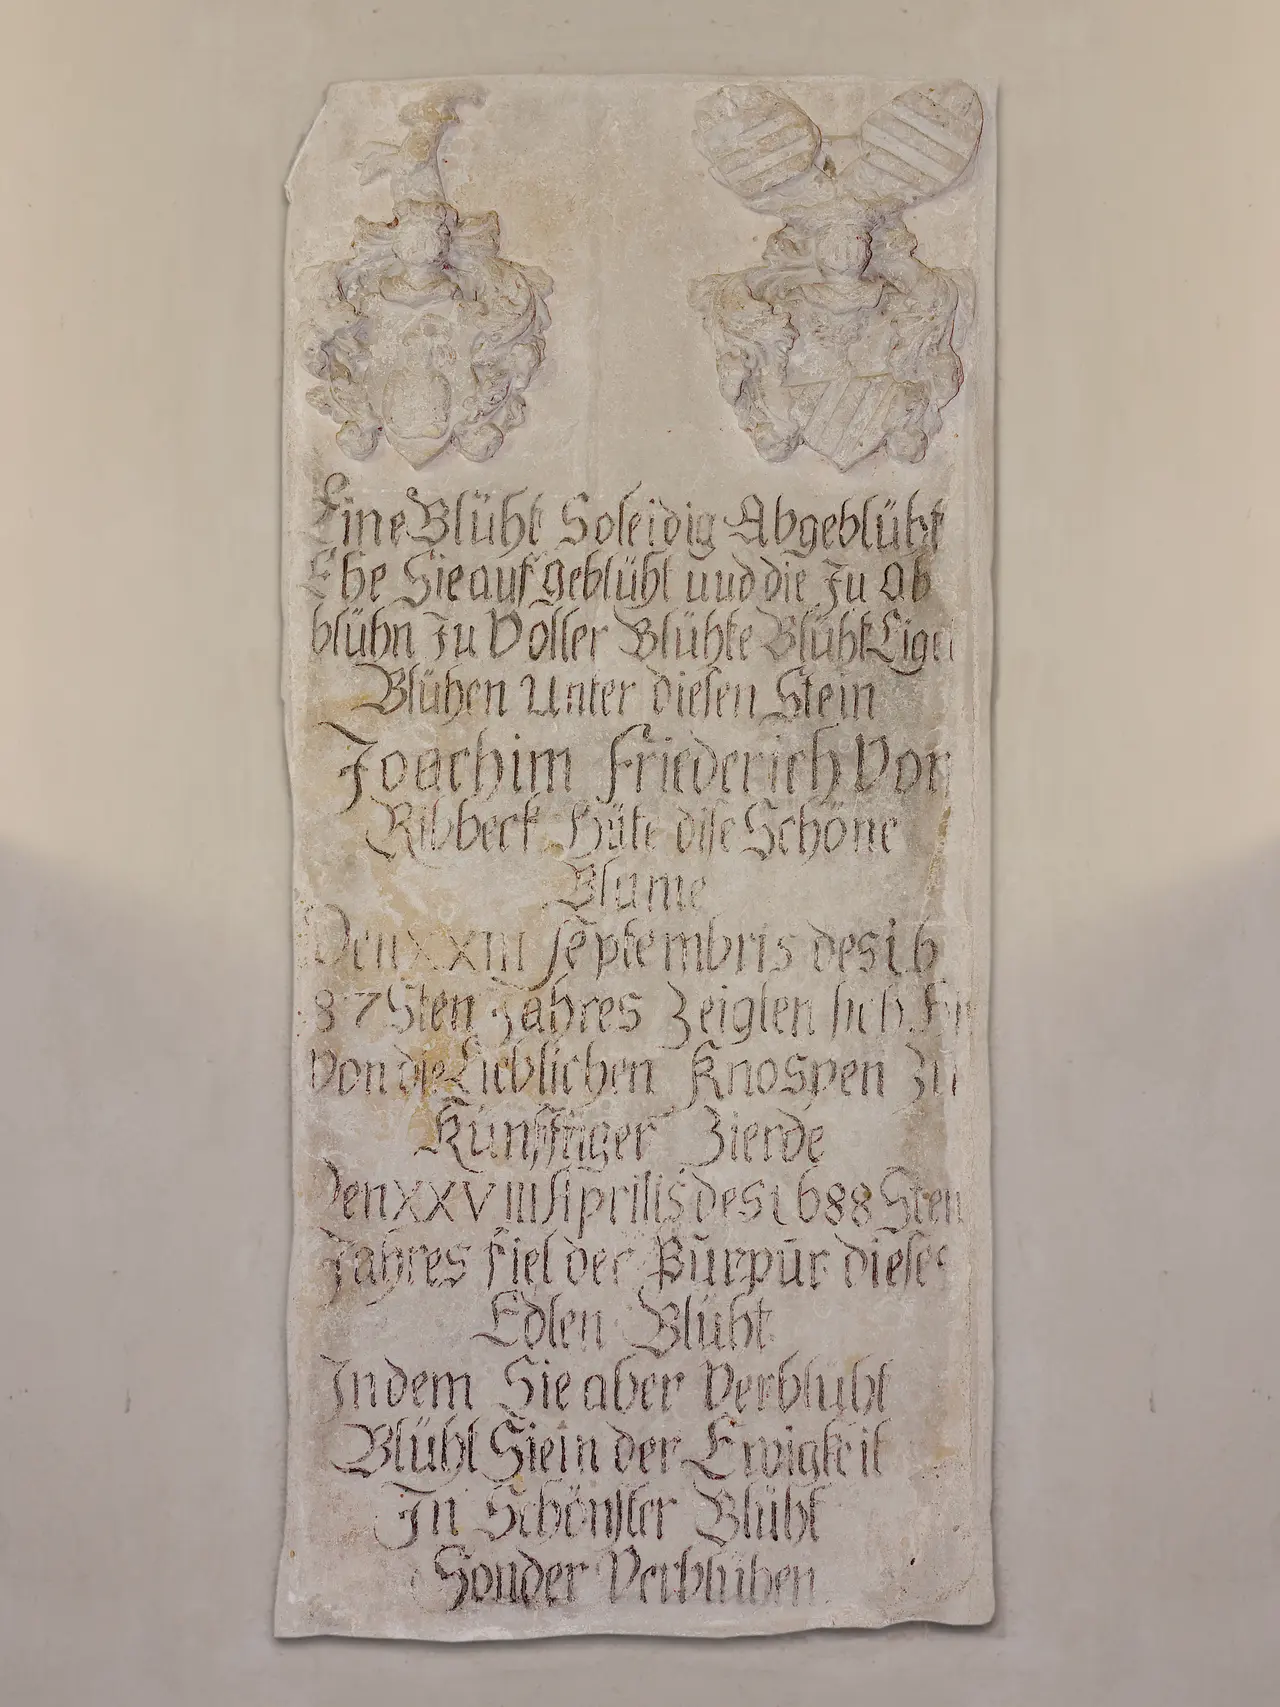 Eine Blüht So leidig Abgeblüht
Ehe Sie auf geblüht und die Zu Ab
blühn Zu Voller Blühte Blüht Ligt
Blühen Unter diesen Stein
Joachim Friederich Von
Ribbeck Hüte disse Schöne
Blume
Den XXIII septembris des 16
87 Sten Jahres Zeigten sich
Von die Lieblichen Knospen Zu
Künfftiger Zierde
Den XXVIII Aprilis des 1688 Sten
Jahres fiel der Pūrpūr dieser
Edlen Blüht
Indem Sie aber Verblüht
Blüht Sie in der Ewigkeit
In Schönster Blüht
Sonder Verblühen